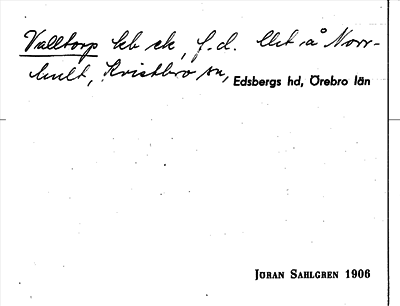 Valltorp lhb sk, f.d. llet å Norr-
hult, Kvistbro sn, Edsbergs hd, Örebro län
JÖRAN SAHLGREN 1906